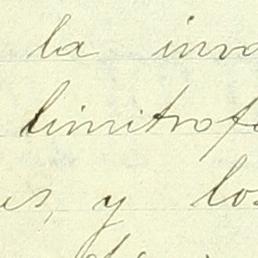 la inva
limitrofe
es, y los